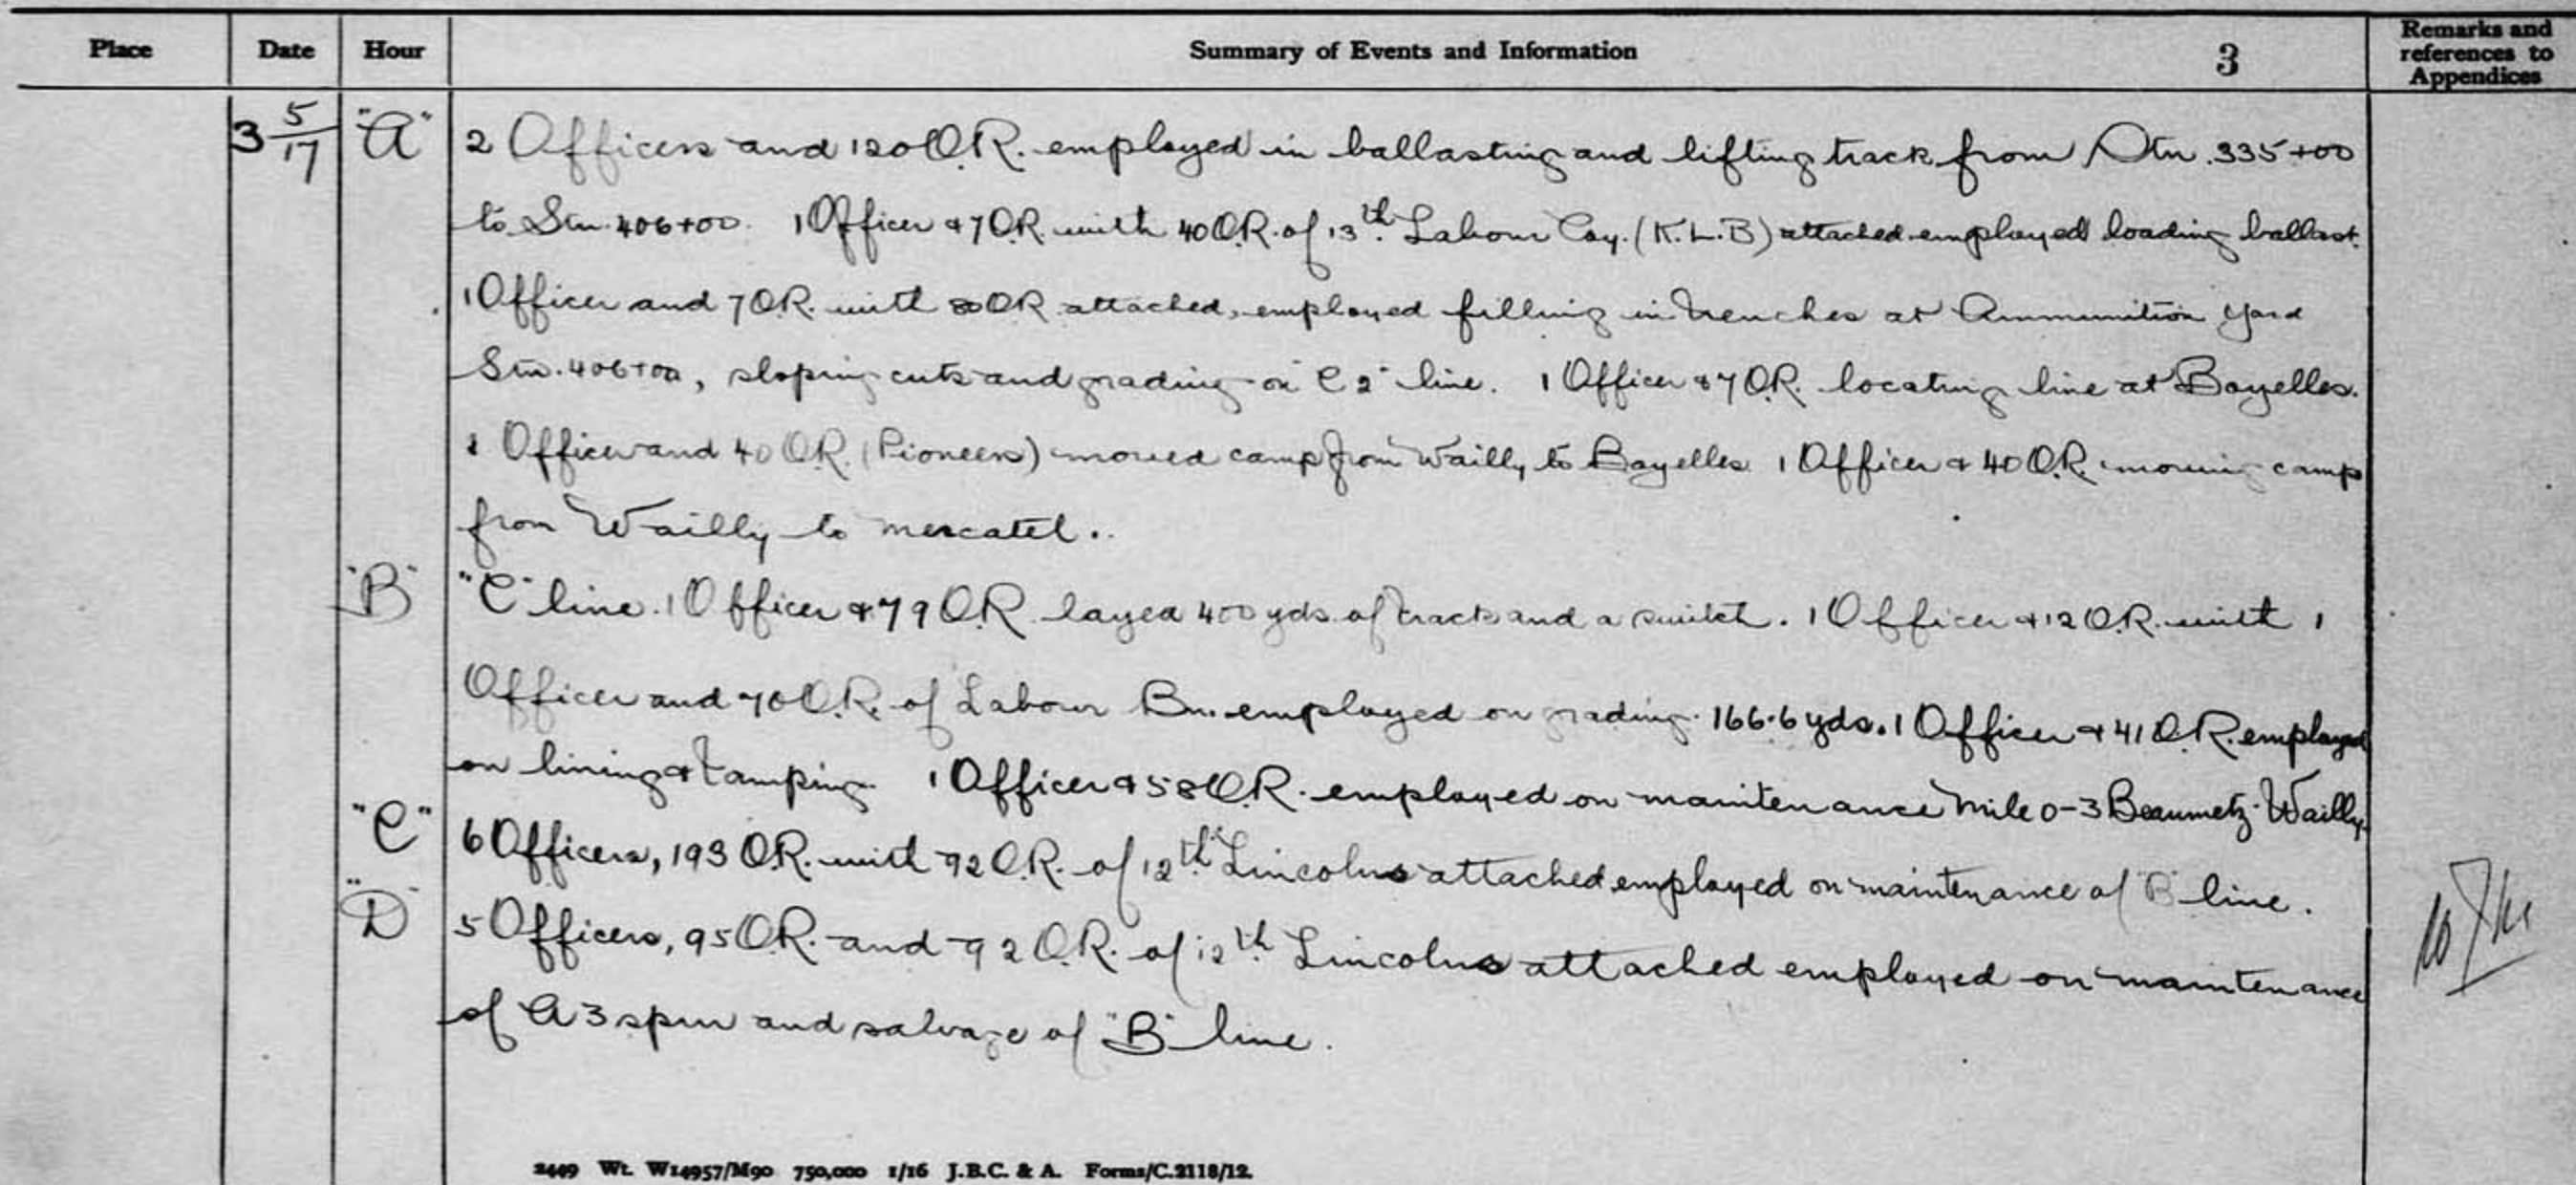 Place Date Hour Summary of Events and Information 3 Remarks and references to Appendices
3 5/17 "A" 2 Officers and 120 O.R. employed in ballasting and lifting track from Stn. 335+00
to Stn. 406+00. 1 Officer & 7 O.R. with 40 O.R. of 13th Labour Coy. (K.L.B) attached employed loading ballast.
1 Officer and 7 O.R. with 80 O.R attached, employed filling in trenches at Ammunition Yard
Stn. 406+00, sloping cuts and grading on "C2" line. 1 Officer & 7 O.R. locating line at Boyelles.
1 Officer and 40 O.R. (Pioneers) moved camp from Wailly to Boyelles 1 Officer & 40 O.R. moving camp
from Wailly to Mercatel.
"B" "C" line. 1 Officer & 79 O.R. layed 400 yds. of track and a switch. 1 Officer & 12 O.R. with 1
Officer and 70 O.R. of Labour Bn. employed on grading. 166.6 yds. 1 Officer & 41 O.R. employed
on lining & tamping 1 Officer & 58 O.R. employed on maintenance Mile 0-3 Beaumetz-Wailly.
"C" 6 Officers, 193 O.R. with 92 O.R. of 12th Lincolns attached employed on maintenance of "B" line.
"D" 5 Officers, 95 O.R. and 92 O.R. of 12th Lincolns attached employed on maintenance
of A3 spur and salvage of "B" line.
2449 Wt. W14957/M90 750,000 1/16 J.B.C. & A. Forms/C.2118/12.